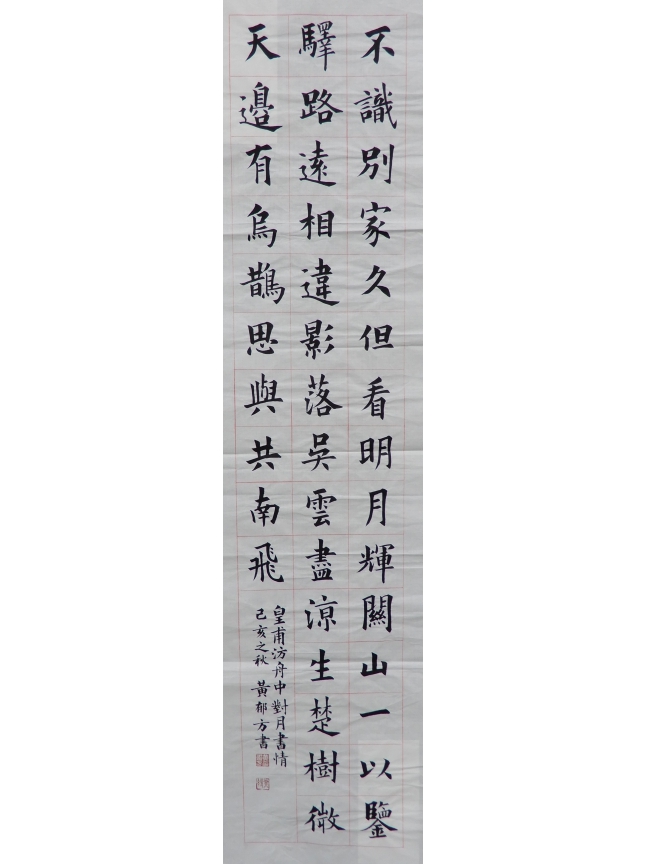 不識別家久但看明月輝關山一以鑒
驛路遠相違影落吳雲盡涼生楚樹微
天邊有烏鵲思與共南飛
皇甫汸舟中對月書情
己亥之秋 黃郁方書